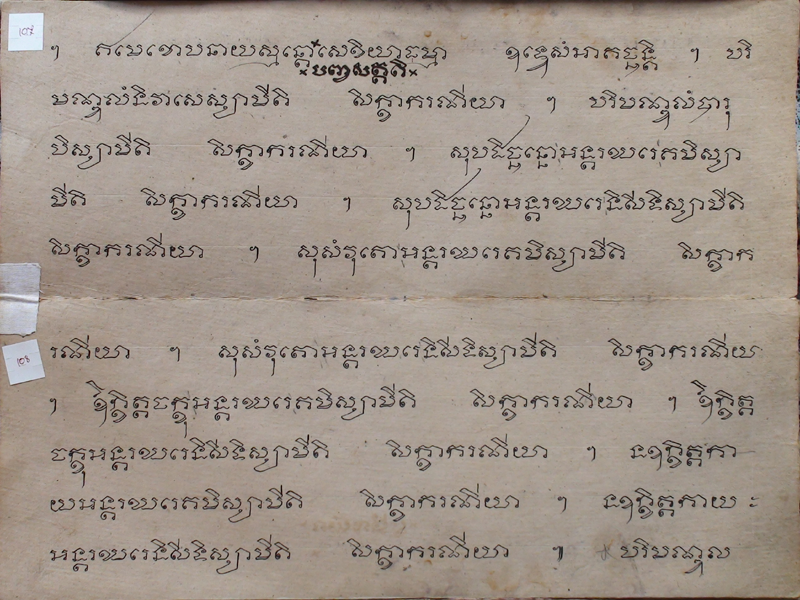 107
ៗ ឥមេខោបនាយស្មន្តោ×សេខិយាធម្មា ឧទ្ទេសំអាគច្ឆន្តិ ៗ បរិ
×បញ្ចសត្តតិ×
មណ្ឌលំនិវាសេស្សាមីតិ សិក្ខាករណីយា ៗ បរិមណ្ឌលំបារុ
បិស្សាមីតិ សិក្ខាករណីយា ៗ សុបដិច្ឆន្នោអន្តរឃរេគមិស្សា
មីតិ សិក្ខាករណីយា ៗ សុបដិច្ឆន្នោអន្តរឃរេនិសីទិស្សាមីតិ
សិក្ខាករណីយា ៗ សុសំវុតោអន្តរឃរេគមិស្សាមីតិ សិក្ខាក
108
រណីយា ៗ សុសំវុតោអន្តរឃរេនិសីទិស្សាមីតិ សិក្ខាករណីយា
ៗ ឱក្ខិត្តចក្ខុអន្តរឃរេគមិស្សាមីតិ សិក្ខាករណីយា ៗ ឱក្ខិត្ត
ចក្ខុអន្តរឃរេនិសីទិស្សាមីតិ សិក្ខាករណីយា ៗ នឧក្ខិត្តកា
យអន្តរឃរេគមិស្សាមីតិ សិក្ខាករណីយា ៗ នឧក្ខិត្តកាយ
អន្តរឃរេនិសីទិស្សាមីតិ សិក្ខាករណីយា ៗ បរិមណ្ឌល